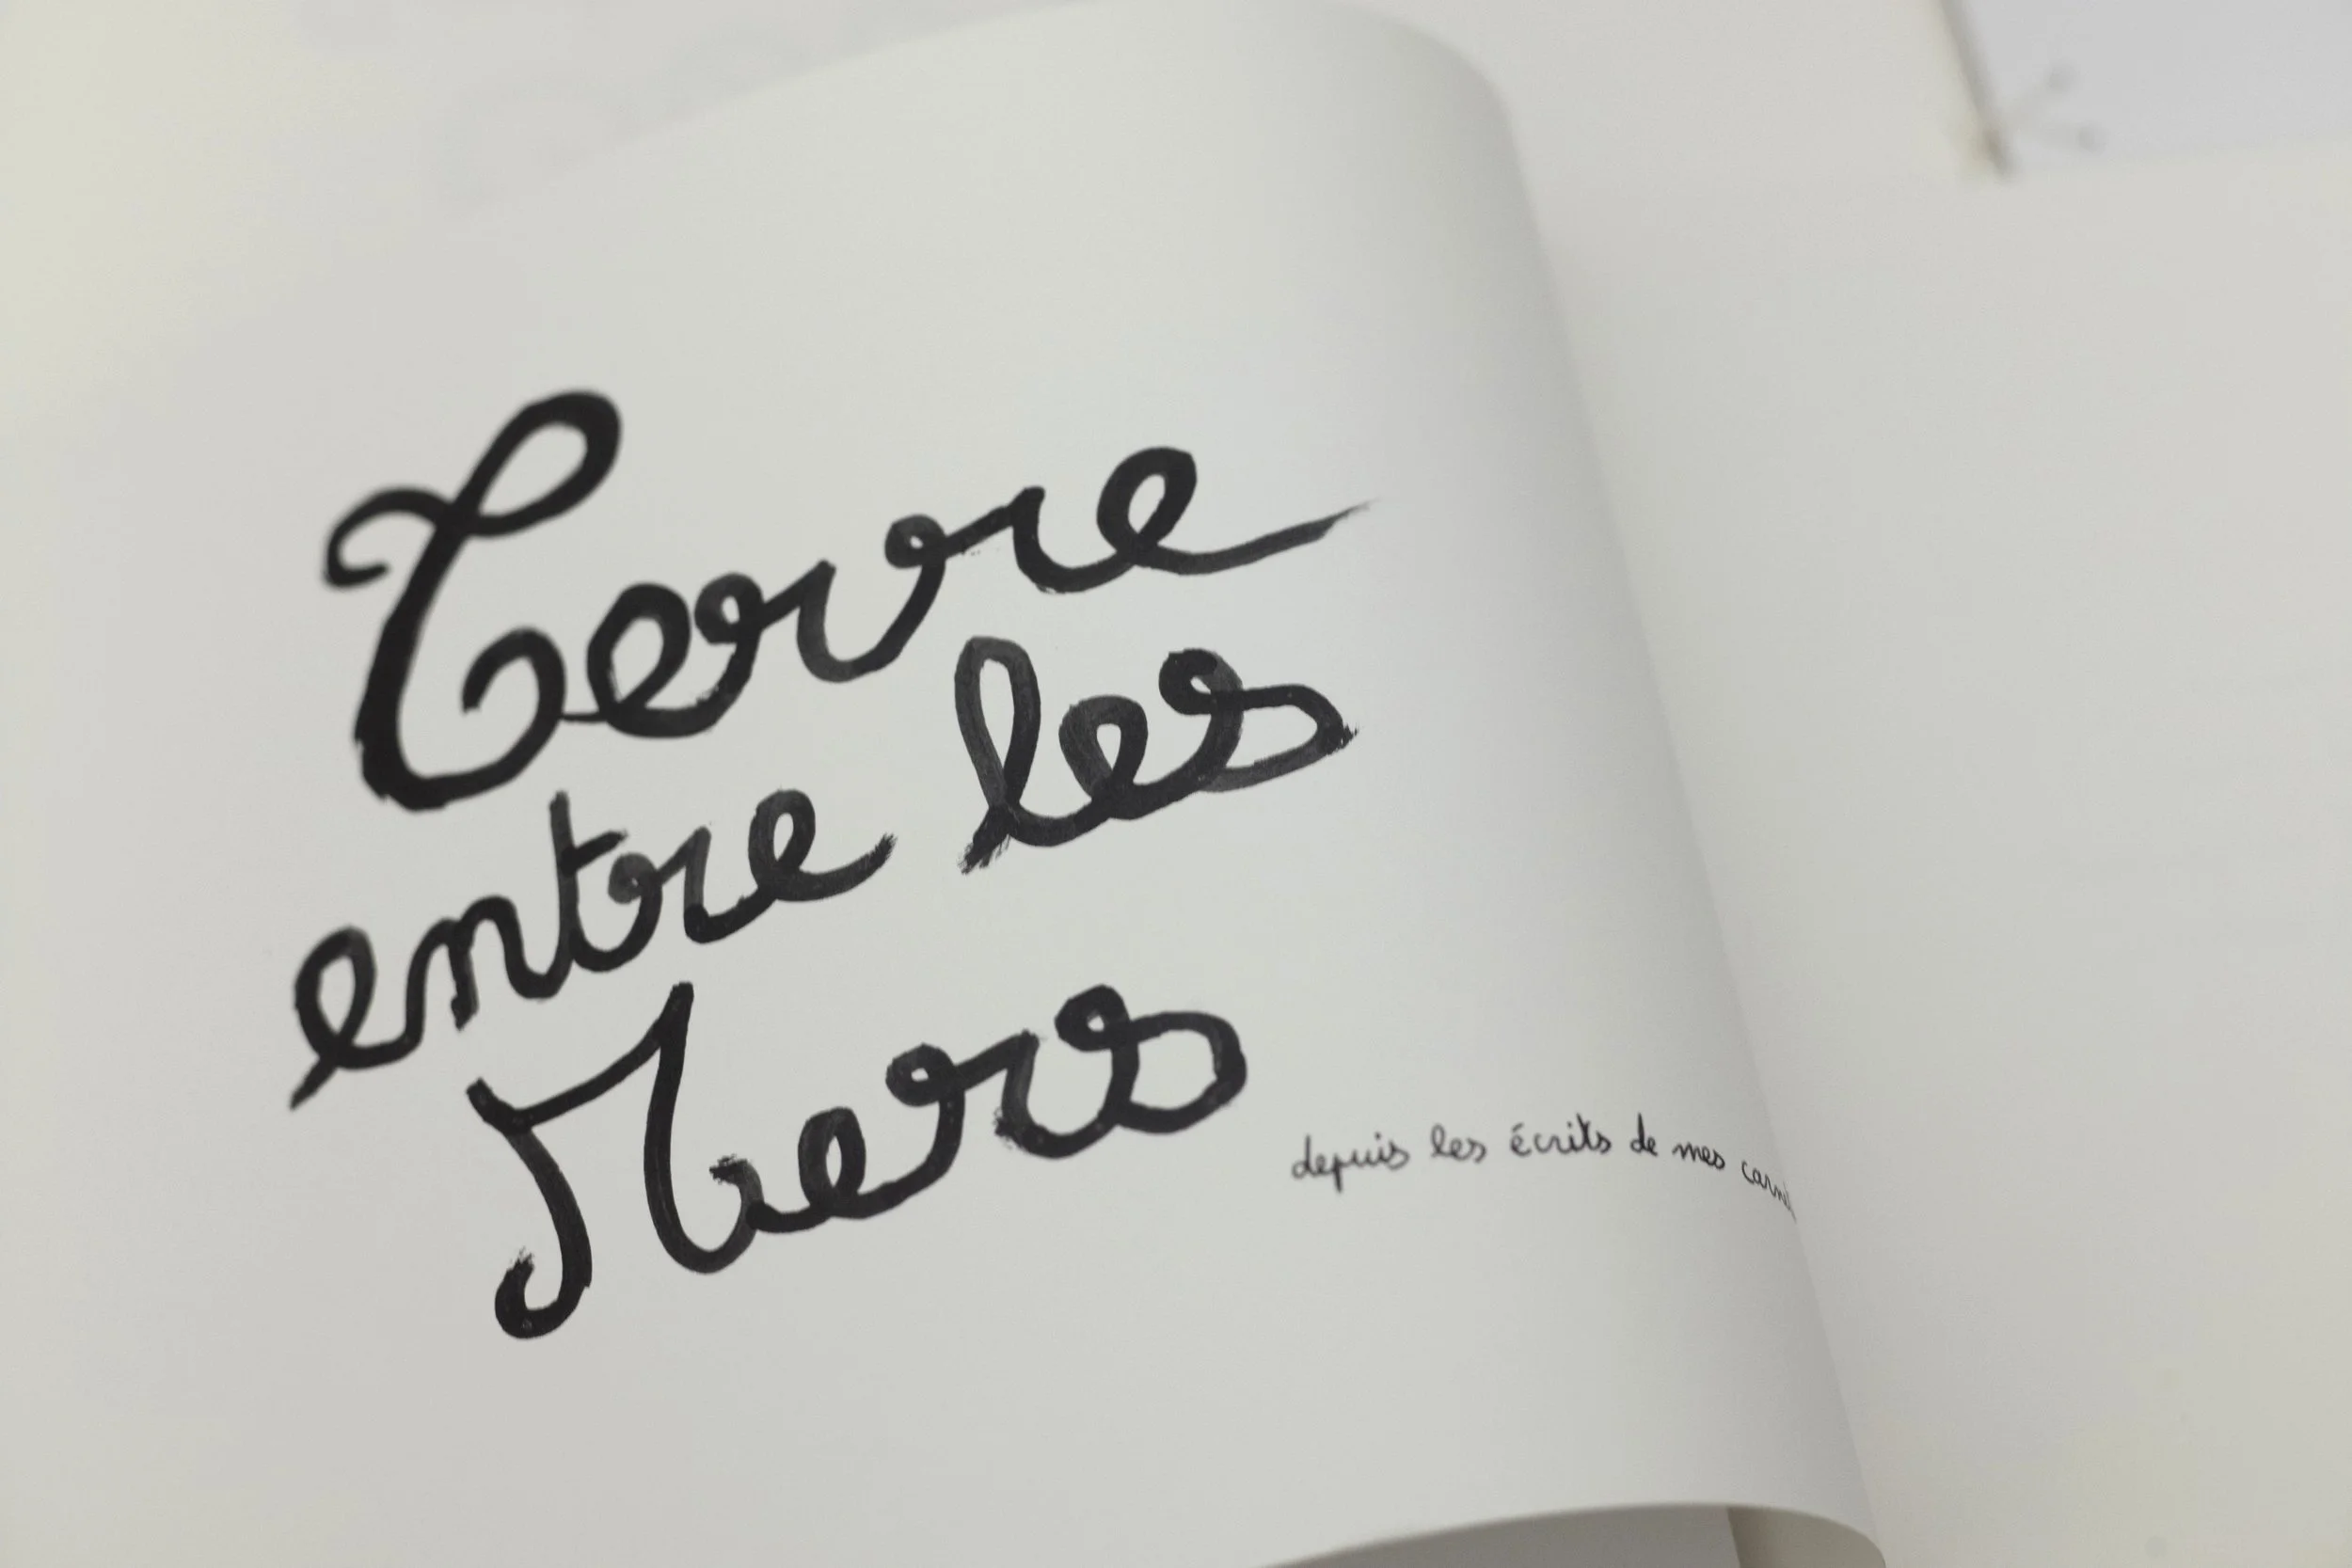 Terre
entre les
Mers
depuis les écrits de mes